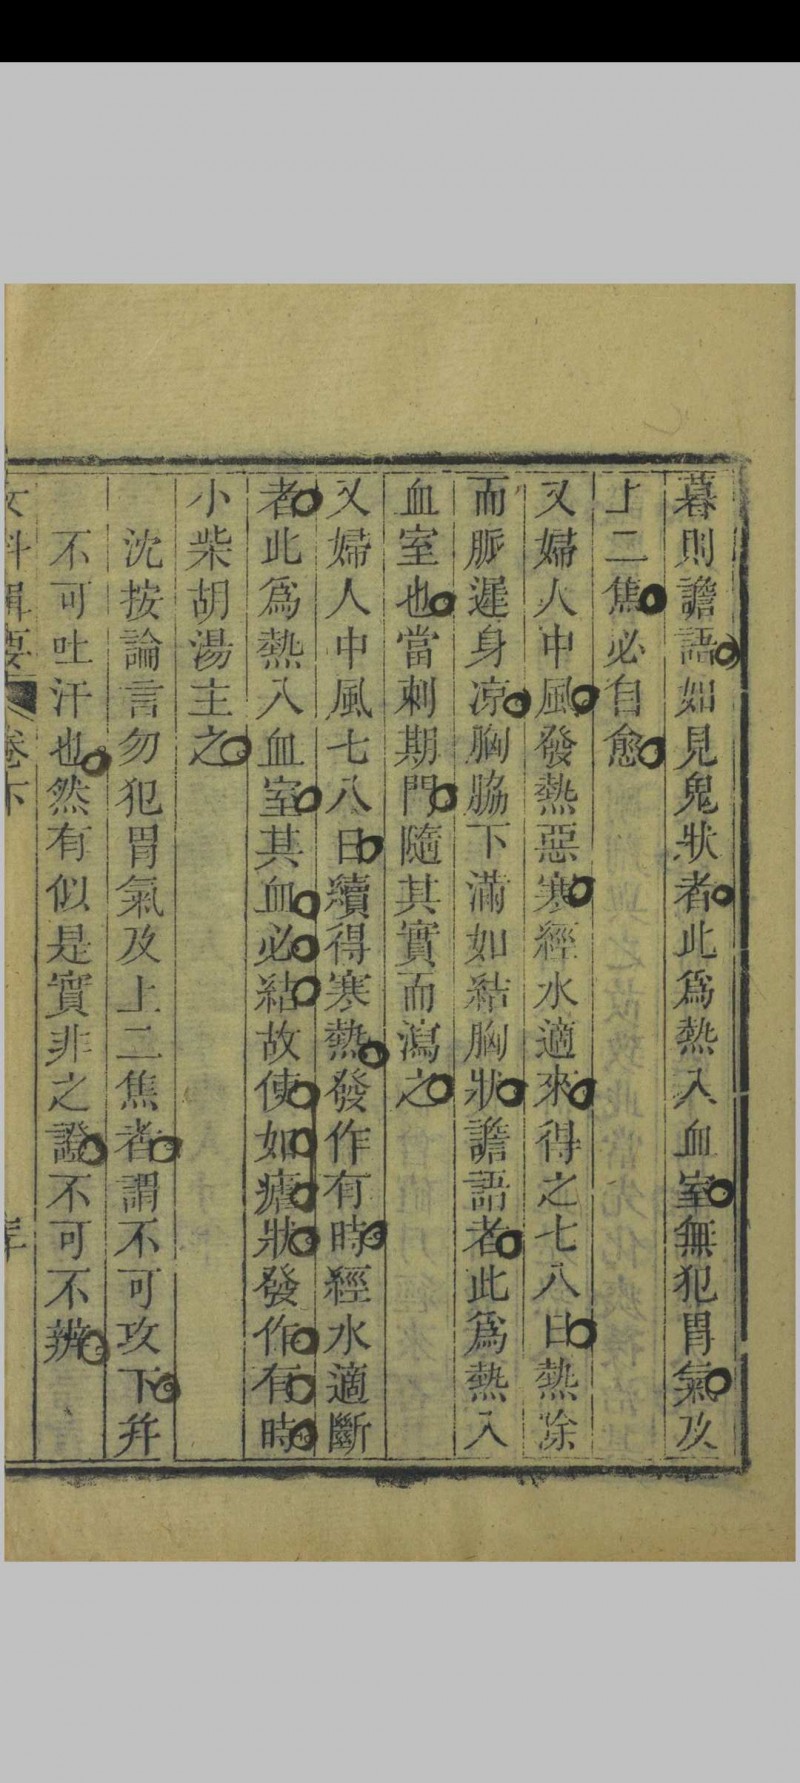 暮則譫語如見鬼狀者此爲熱入血室無犯胃氣及
上二焦必自愈
又婦人中風發熱惡寒經水適來得之七八日熱除
而脈遲身凉胸脇下滿如結胸狀譫語者此爲熱入
血室也當刺期門隨其實而瀉之
又婦人中風七八日續得寒熱發作有時經水適斷
者此爲熱入血室其血必結故使如瘧狀發作有時
小柴胡湯主之
沈按論言勿犯胃氣及上二焦者謂不可攻下幷
不可吐汗也然有似是實非之證不可不辨
女科輯要 卷下